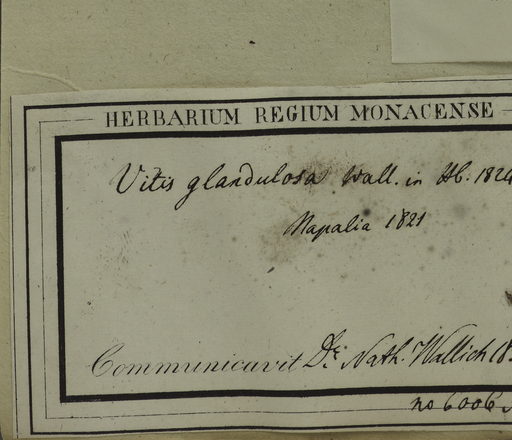 HERBARIUM REGIUM MONACENSE
Vitis glandulosa Wall. in Hb. 1824
Napalia 1821
Communicavit Dr. Nath. Wallich 18
no 6006